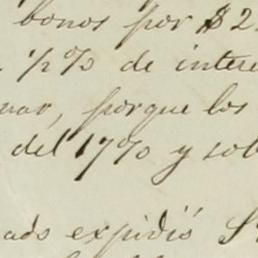 bonos por $2
1/2% de intere
uar, porque los
del 17% y sob
ado expidió S